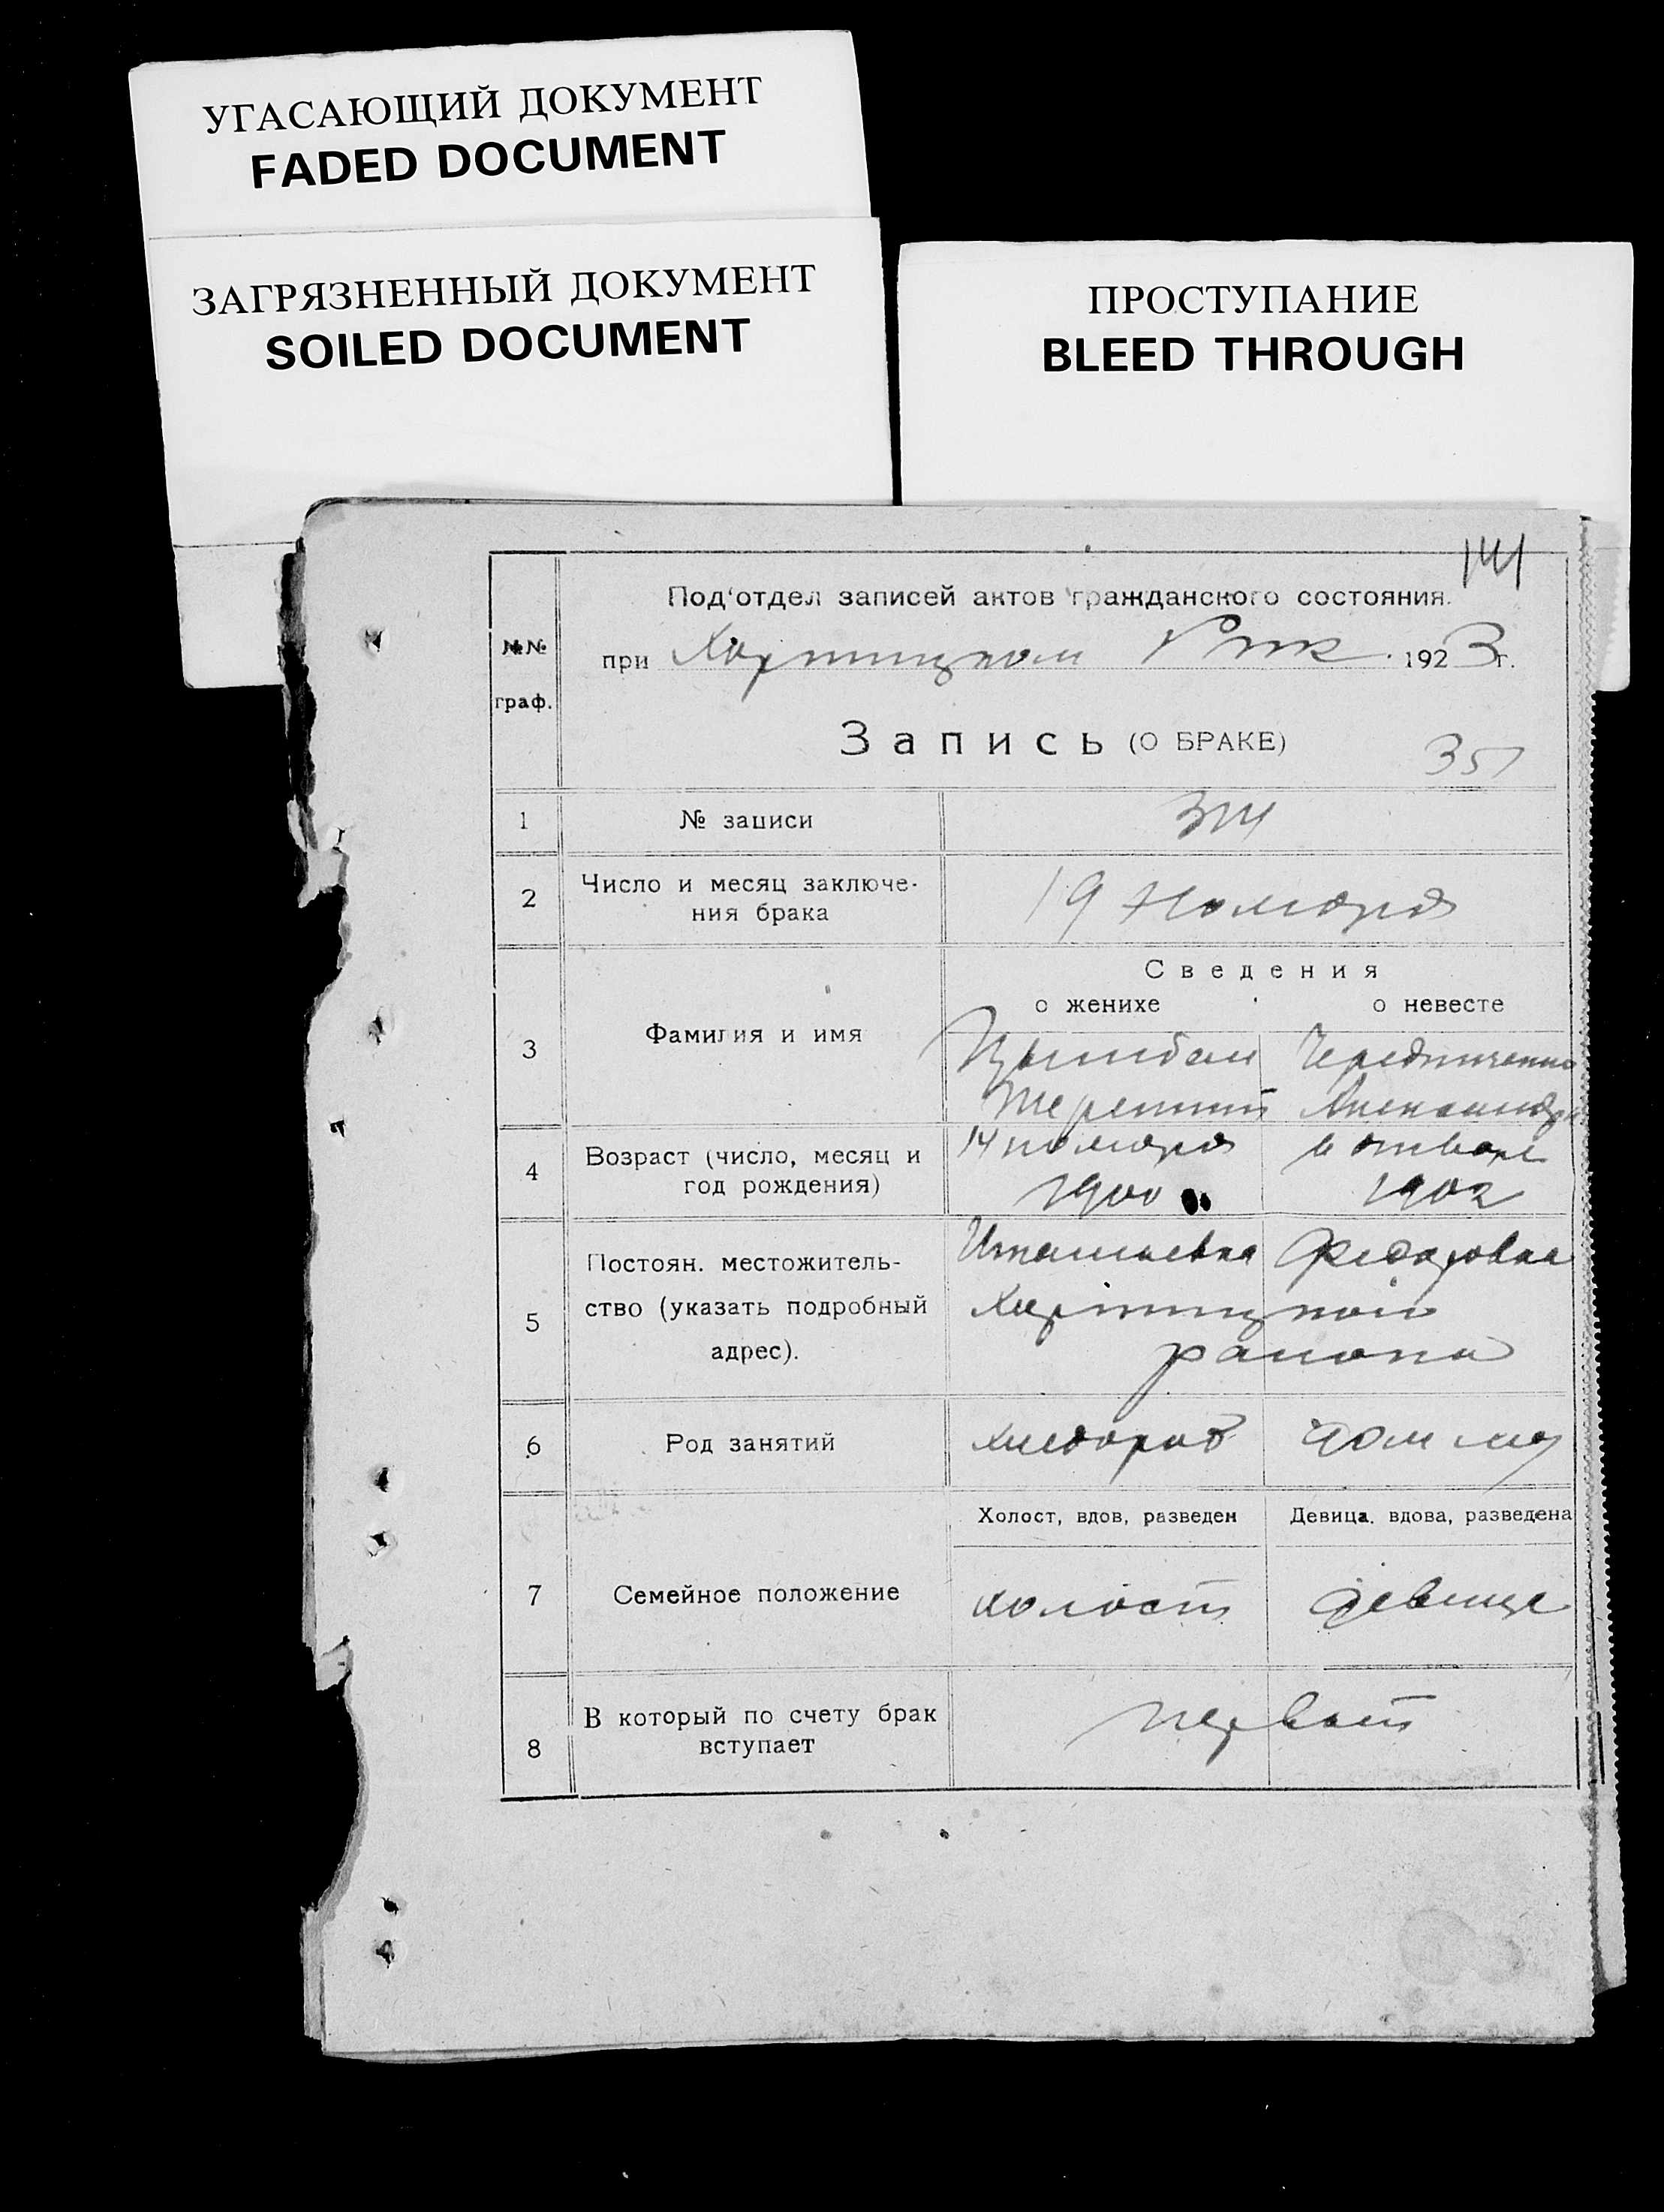 УГАСАЮЩИЙ ДОКУМЕНТ
FADED DOCUMENT
ЗАГРЯЗНЕННЫЙ ДОКУМЕНТ
SOILED DOCUMENT
ПРОСТУПАНИЕ
BLEED THROUGH
141
Под'отдел записей актов гражданского состояния.
при Хортицком Рик 1923 г.
№№
граф.
Запись (О БРАКЕ)
351
1 № записи
2 Число и месяц заключе-
ния брака
19 Ноября
Сведения
о женихе о невесте
3 Фамилия и имя
Цымбал Чередниченко
Терентий Александра
4 Возраст (число, месяц и
год рождения)
14 ноября января
1900 1902
5 Постоян. местожитель-
ство (указать подробный
адрес).
Федоровка
Хортицкой
района
6 Род занятий
хлебороб
Холост, вдов, разведен Девица, вдова, разведена
7 Семейное положение
холост девица
8 В который по счету брак
вступает
первый